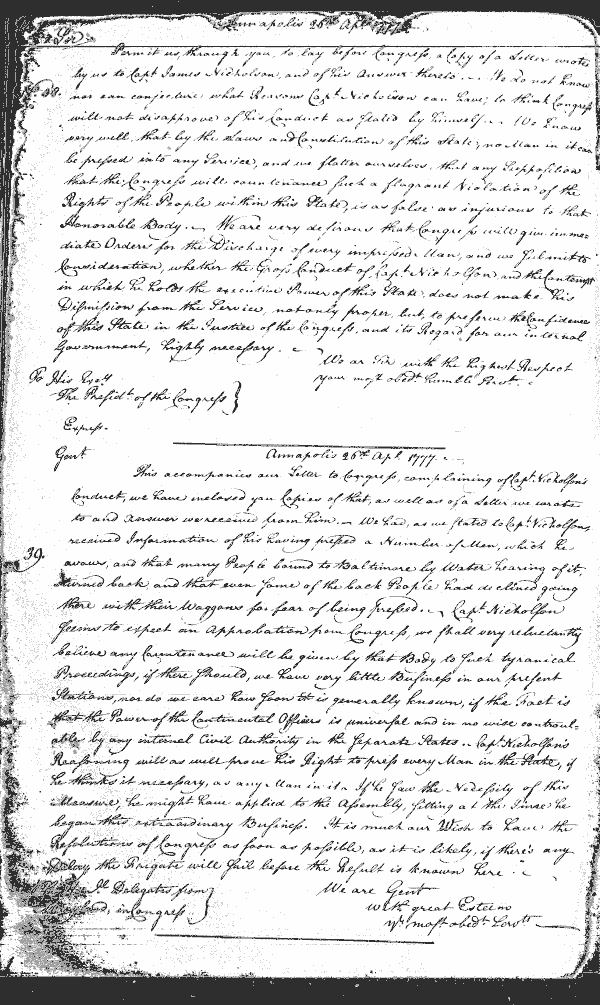 Annapolis 26th Apl. 1777.
Sir
Permit us, through you, to lay before Congress, a Copy of a Letter wrote
by us to Capt James Nicholson, and of his Answer thereto. We do not know
nor can conjecture what Reasons Capt. Nicholson can have, to think Congress
will not disapprove of his Conduct as stated by himself. We know
very well, that by the Laws and Constitution of this State, no Man in it can
be pressed into any Service, and we flatter ourselves, that any Supposition
that the Congress will countenance such a flagrant Violation of the
Rights of the People within this State, is as false as injurious to that
Honorable Body. We are very desirous that Congress will give imme-
diate Orders for the Discharge of every impressed Man, and we submit to
Consideration, whether the Gross Conduct of Capt. Nicholson and the Contempt
in which he holds the executive Power of this State, does not make his
Dismission from the Service, not only proper, but, to preserve the Confidence
of this State in the Justice of the Congress, and its Regard for our internal
Government, highly necessary.
We are Sir with the highest Respect
your most obedt. humble Servts.
To His Excy
The Presidt. of the Congress
Express.
38.
Annapolis 26th Apl. 1777.
Gent.
This accompanies our Letter to Congress, complaining of Capt. Nicholson's
Conduct, we have inclosed you Copies of that, as well as of a Letter we wrote
to and Answer we received from him. We had, as we stated to Capt. Nicholson,
received Information of his having pressed a Number of Men, which he
avows, and that many People bound to Baltimore by Water hearing of it,
turned back, and that even some of the back People had declined going
there with their Waggons for fear of being pressed. Capt. Nicholson
seems to expect an Approbation from Congress, we shall very reluctantly
believe any Countenance will be given by that Body to such tyranical
Proceedings, if there should, we have very little Business in our present
Stations, nor do we care how soon it is generally known, if the Fact is
that the Power of the Continental Officers is universal and in no wise controul-
able by any internal Civil Authority in the Separate States. Capt. Nicholson's
Reasoning will as well prove his Right to press every Man in the State, if
he thinks it necessary, as any Man in it. If he saw the Necessity of this
Measure, he might have applied to the Assembly, sitting at the Time he
began this extraordinary Business. It is much our Wish to have the
Resolutions of Congress as soon as possible, as it is likely, if there's any
Delay the Frigate will sail before the Result is known here.
We are Gent
with great Esteem
Yr. most obedt. Servts.
Delegates from
Maryland, in Congress
39.